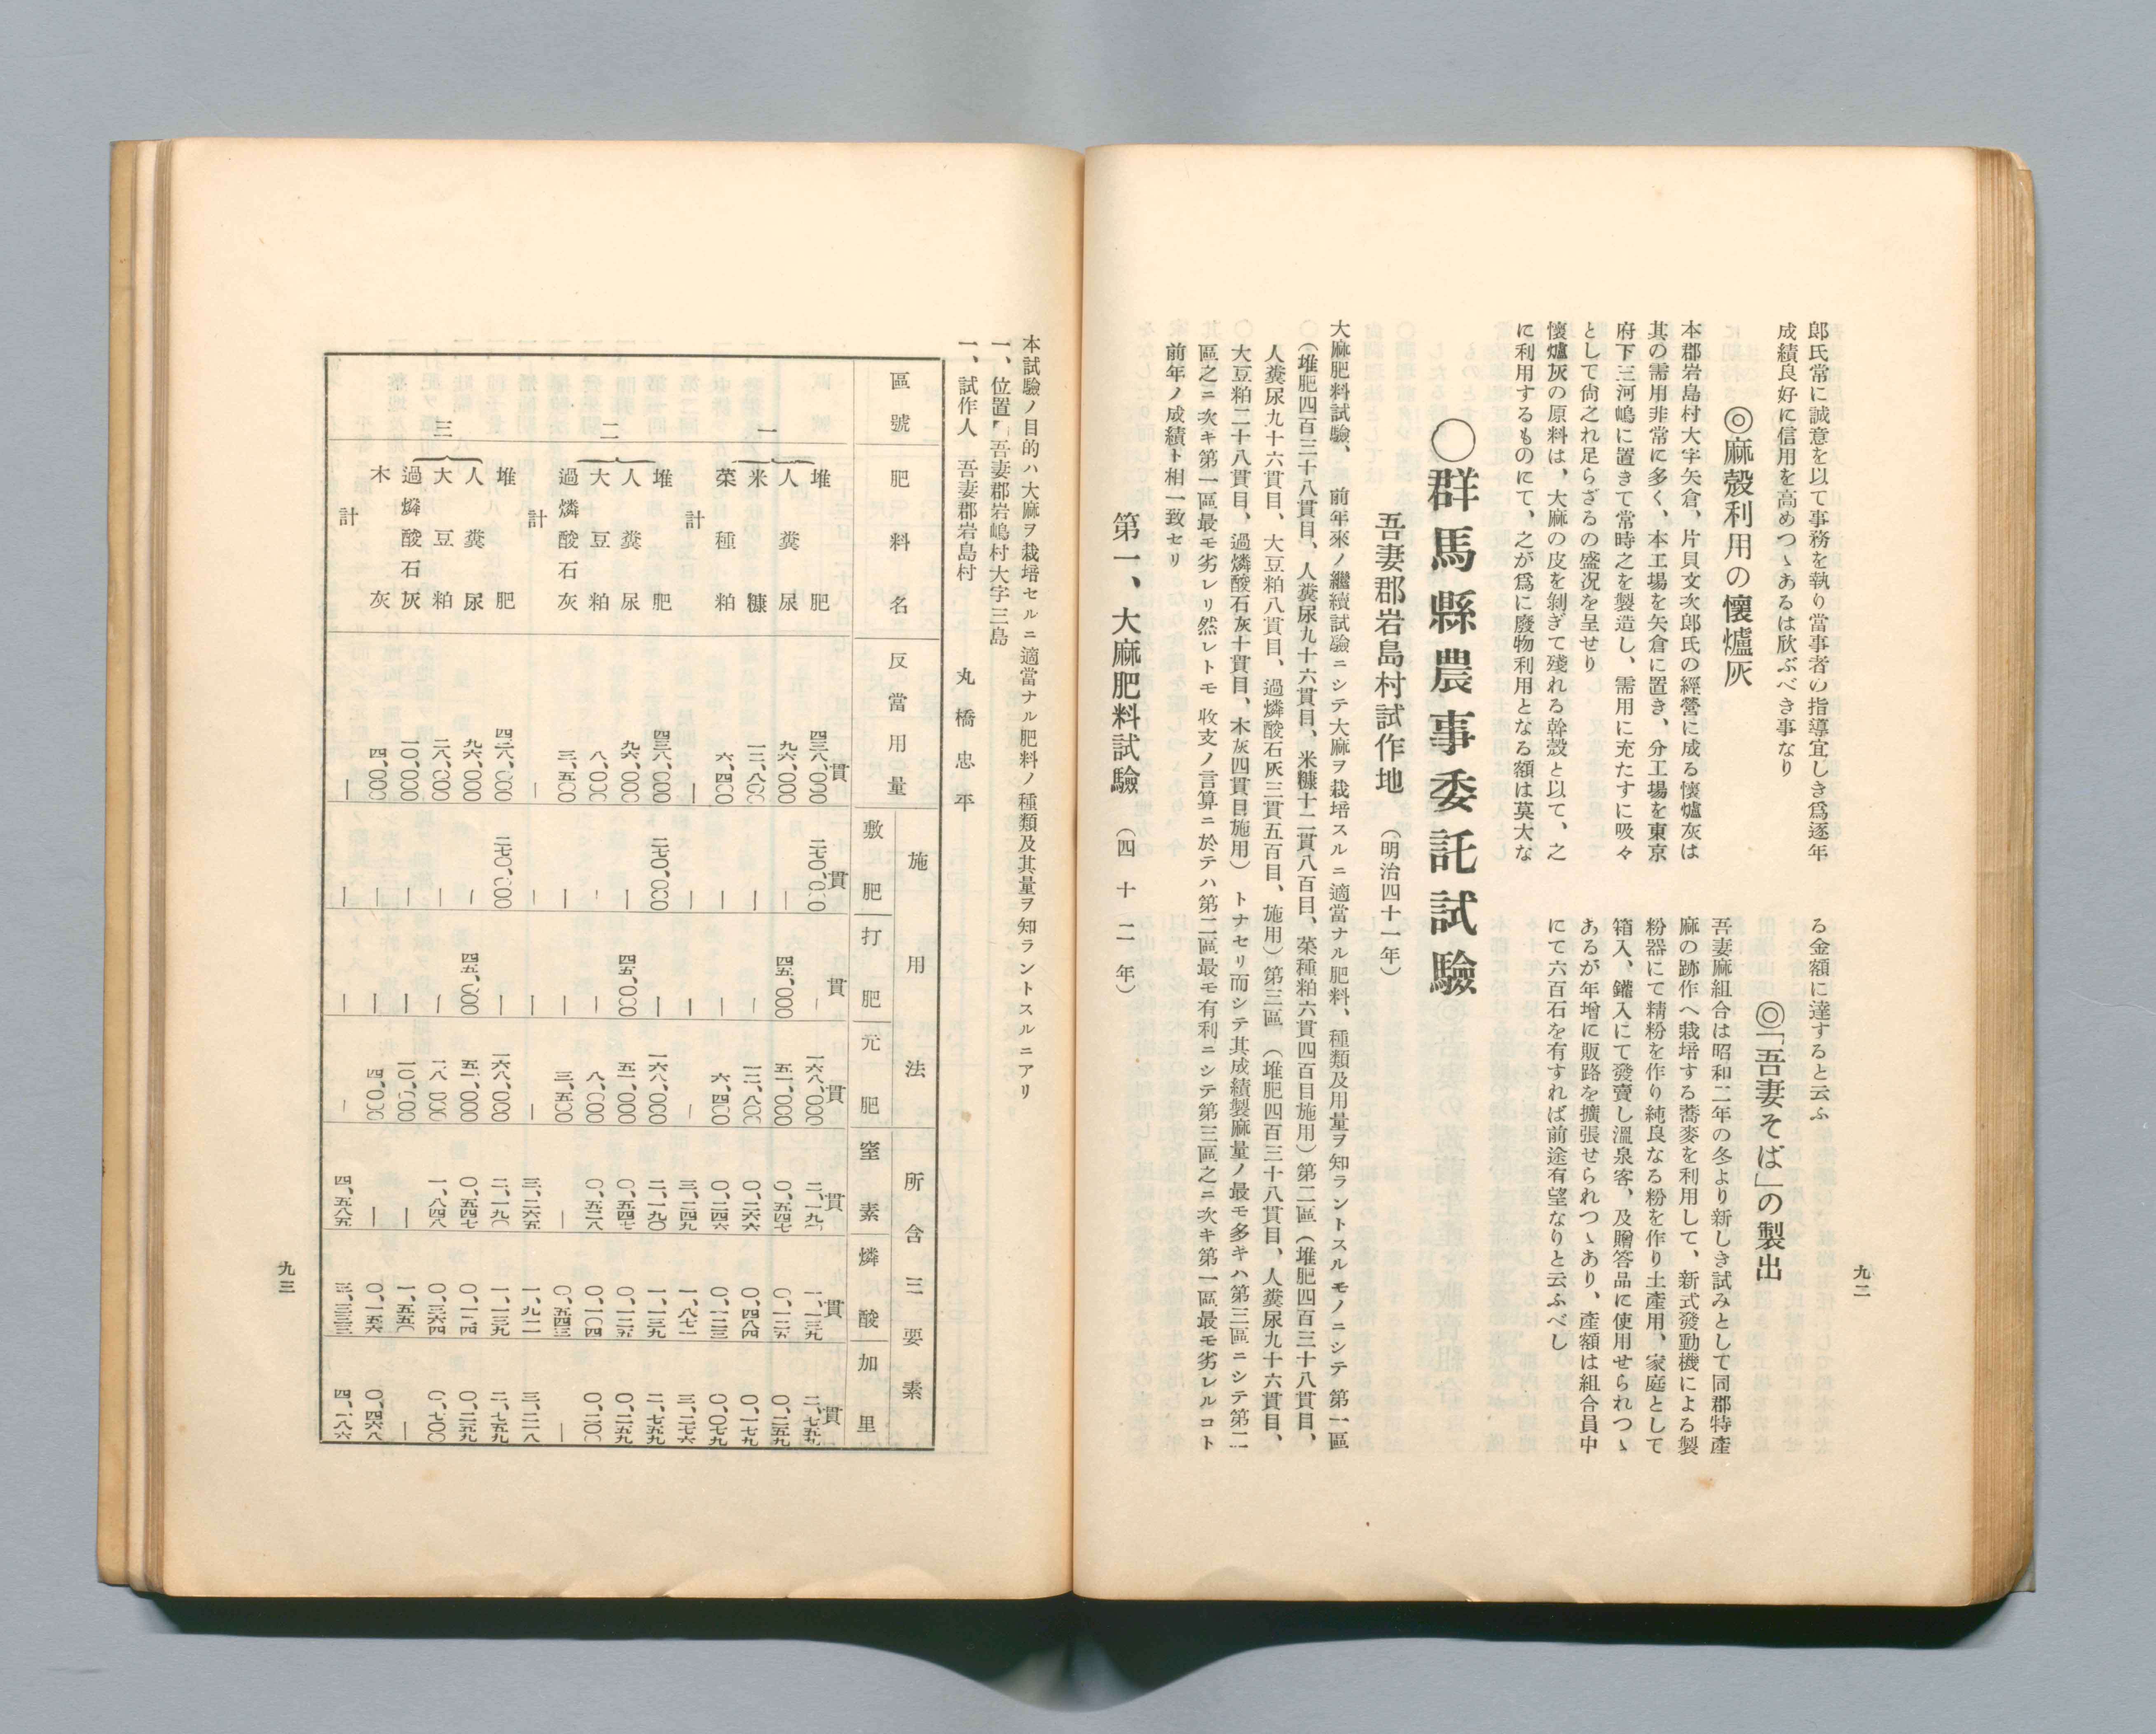 郎氏常に誠意を以て事務を執り當事者の指導宜しき爲逐年
成績良好に信用を高めつゝあるは欣ぶべき事なり
◎麻殼利用の懷爐灰
本郡岩島村大字矢倉、片貝文次郎氏の經營に成る懷爐灰は
其の需用非常に多く、本工場を矢倉に置き、分工場を東京
府下三河嶋に置きて常時之を製造し、需用に充たすに吸々
として尙之れ足らざるの盛況を呈せり
懷爐灰の原料は、大麻の皮を剝ぎて殘れる幹殼と以て、之
に利用するものにて、之が爲に廢物利用となる額は莫大な
る金額に達すると云ふ
◎「吾妻そば」の製出
吾妻麻組合は昭和二年の冬より新しき試みとして同郡特產
麻の跡作へ栽培する蕎麥を利用して、新式發動機による製
粉器にて精粉を作り純良なる粉を作り土產用、家庭として
箱入、鑵入にて發賣し溫泉客、及贈答品に使用せられつゝ
あるが年增に販路を擴張せられつゝあり、產額は組合員中
にて六百石を有すれば前途有望なりと云ふべし
〇群馬縣農事委託試驗
吾妻郡岩島村試作地 （明治四十一年）
大麻肥料試驗、 前年來ノ繼續試驗ニシテ大麻ヲ栽培スルニ適當ナル肥料、種類及用量ヲ知ラントスルモノニシテ 第一區
（堆肥四百三十八貫目、人糞尿九十六貫目、米糠十二貫八百目、菜種粕六貫四百目施用）第二區（堆肥四百三十八貫目、
人糞尿九十六貫目、大豆粕八貫目、過燐酸石灰三貫五百目、施用）第三區 （堆肥四百三十八貫目、人糞尿九十六貫目、
大豆粕二十八貫目、過燐酸石灰十貫目、木灰四貫目施用） トナセリ而シテ其成績製麻量ノ最モ多キハ第三區ニシテ第二
區之ニ次キ第一區最モ劣レリ然レトモ 收支ノ言算ニ於テハ第二區最モ有利ニシテ第三區之ニ次キ第一區最モ劣レルコト
前年ノ成績ト相一致セリ
第一、大麻肥料試驗 （四十二年）
九二
本試驗ノ目的ハ大麻ヲ栽培セルニ適當ナル肥料ノ種類及其量ヲ知ラントスルニアリ
一、位置 吾妻郡岩嶋村大字三島
一、試作人 吾妻郡岩島村 丸橋忠平
區號 肥料名 反當用量 施用法 所含三要素
敷肥 打肥 元肥 窒素 燐酸 加里
貫 貫 貫 貫 貫 貫 貫
一 堆肥 四三八、〇〇〇 二七〇、〇〇〇 ― 一六八、〇〇〇 二、一九〇 一、一三九 二、七五九
人糞尿 九六、〇〇〇 ― 四五、〇〇〇 五一、〇〇〇 〇、五四七 〇、一二五 〇、二五九
米糠 一二、八〇〇 ― ― 一二、八〇〇 〇、二六六 〇、四八四 〇、一七九
菜種粕 六、四〇〇 ― ― 六、四〇〇 〇、二四六 〇、一二三 〇、〇七九
計 ― ― ― ― 三、二四九 一、八七一 三、二七六
二 堆肥 四三八、〇〇〇 二七〇、〇〇〇 ― 一六八、〇〇〇 二、一九〇 一、一三九 二、七五九
人糞尿 九六、〇〇〇 ― 四五、〇〇〇 五一、〇〇〇 〇、五四七 〇、一二五 〇、二五九
大豆粕 八、〇〇〇 ― ― 八、〇〇〇 〇、五二八 〇、一〇四 〇、二〇〇
過燐酸石灰 三、五〇〇 ― ― 三、五〇〇 ― 〇、五四三 ―
計 ― ― ― ― 三、二六五 一、九一一 三、二一八
三 堆肥 四三八、〇〇〇 二七〇、〇〇〇 ― 一六八、〇〇〇 二、一九〇 一、一三九 二、七五九
人糞尿 九六、〇〇〇 ― 四五、〇〇〇 五一、〇〇〇 〇、五四七 〇、一二四 〇、二五九
大豆粕 二八、〇〇〇 ― ― 二八、〇〇〇 一、八四八 〇、三六四 〇、七〇〇
過燐酸石灰 一〇、〇〇〇 ― ― 一〇、〇〇〇 ― 一、五五〇 ―
木灰 四、〇〇〇 ― ― 四、〇〇〇 ― 〇、一五六 〇、四六八
計 ― ― ― ― 四、五八五 三、三三三 四、一八六
九三